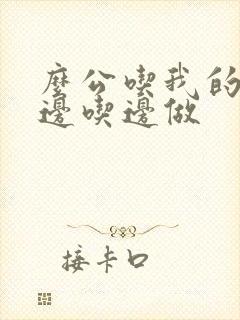 麼公喫我的
邊喫邊做
接卡口